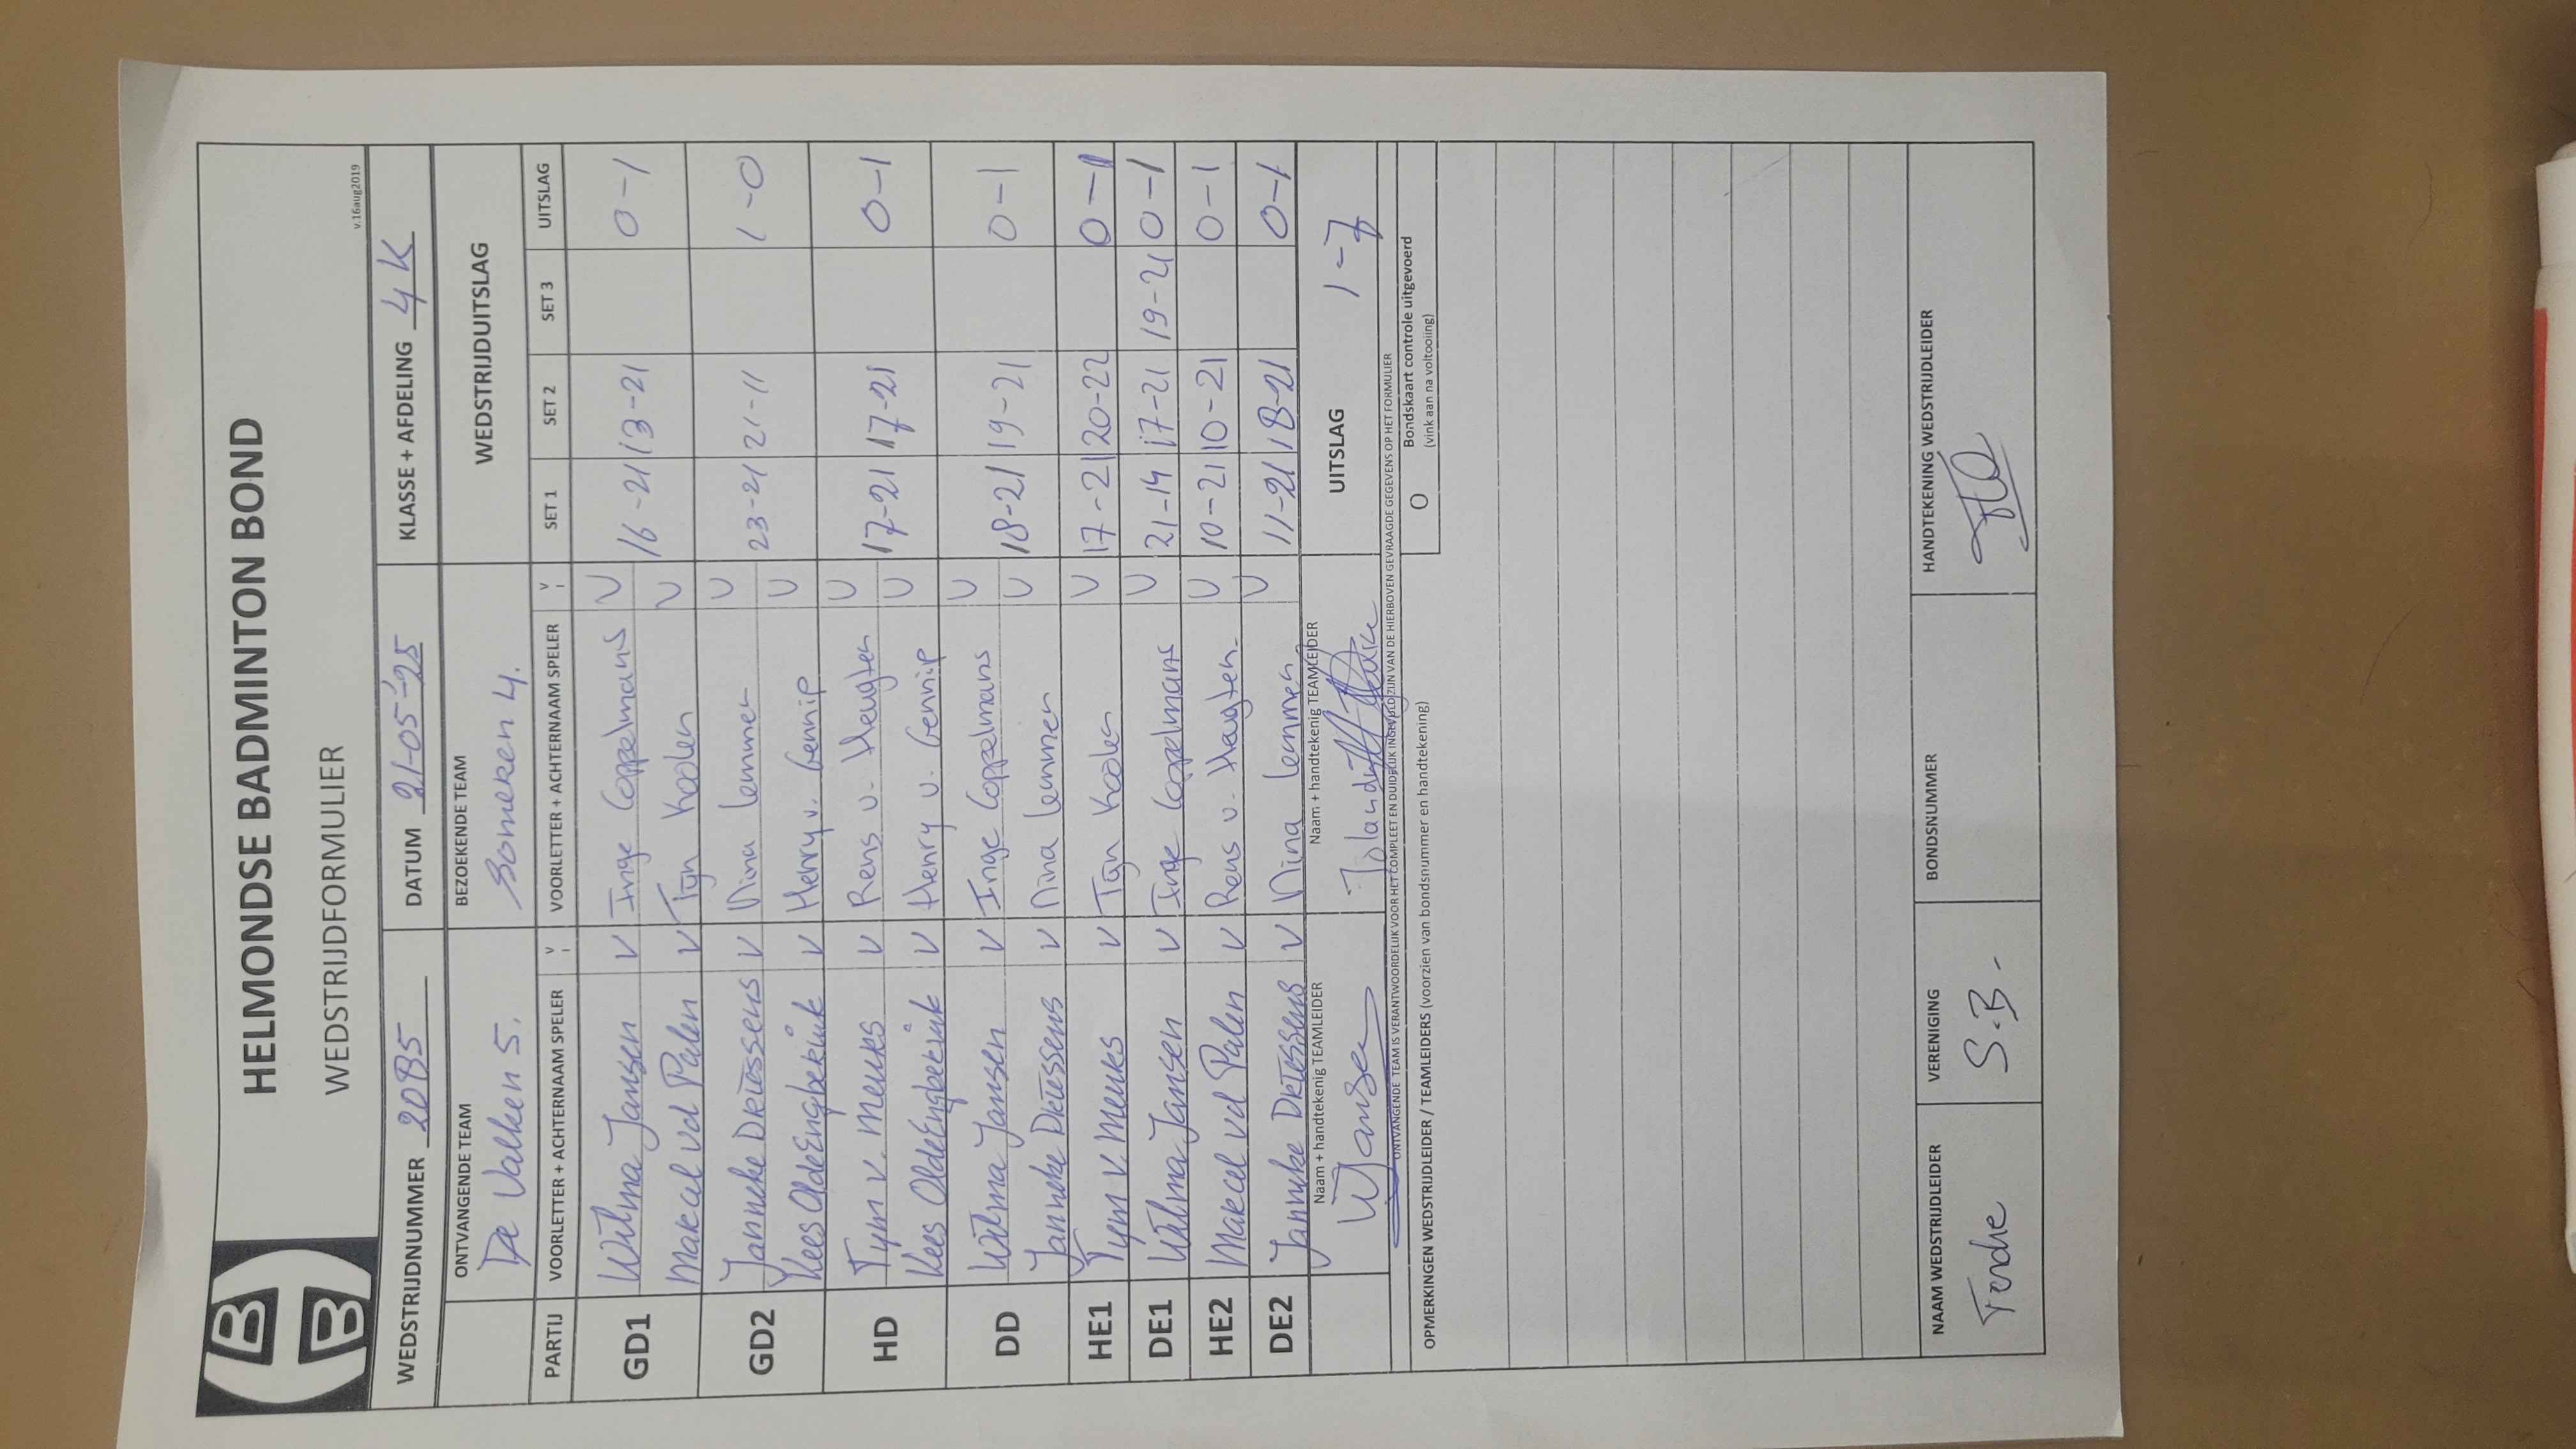 HELMONDSE BADMINTON BOND
WEDSTRIJDFORMULIER
v.16aug2019
WEDSTRIJDNUMMER 2085 DATUM 21-05-'25 KLASSE + AFDELING 4K
ONTVANGENDE TEAM BEZOEKENDE TEAM WEDSTRIJDUITSLAG
De Valken 5. Someren 4.
PARTIJ VOORLETTER + ACHTERNAAM SPELER V VOORLETTER + ACHTERNAAM SPELER V SET 1 SET 2 SET 3 UITSLAG
GD1 Wilma Jansen V Inge Coppelmans V 16-21 13-21 0-1
Marcal vd Palen V Tijn Koolen V
GD2 Janneke Driessens V Nina Lemmen V 23-21 21-11 1-0
Kees Olde Engberink V Henry v. Gennip V
HD Tym v. Meurs V Rens v. Heugten V 17-21 17-21 0-1
Kees Olde Engberink V Henry v. Gennip V
DD Wilma Jansen V Inge Coppelmans V 18-21 19-21 0-1
Janneke Driessens V Nina Lemmen V
HE1 Tym v. Meurs V Tijn Koolen V 17-21 20-22 0-1
DE1 Wilma Jansen V Inge Coppelmans V 21-14 17-21 19-21 0-1
HE2 Marcel vd Palen V Rens v. Heugten V 10-21 10-21 0-1
DE2 Janneke Driessens V Nina Lemmen V 11-21 18-21 0-1
Naam + handtekenig TEAMLEIDER Naam + handtekenig TEAMLEIDER UITSLAG 1-7
WJansen
ONTVANGENDE TEAM IS VERANTWOORDELIJK VOOR HET COMPLEET EN DUIDELIJK INGEVULD ZIJN VAN DE HIERBOVEN GEVRAAGDE GEGEVENS OP HET FORMULIER
O Bondskaart controle uitgevoerd
(vink aan na voltooiing)
OPMERKINGEN WEDSTRIJDLEIDER / TEAMLEIDERS (voorzien van bondsnummer en handtekening)
NAAM WEDSTRIJDLEIDER VERENIGING BONDSNUMMER HANDTEKENING WEDSTRIJDLEIDER
S.B.